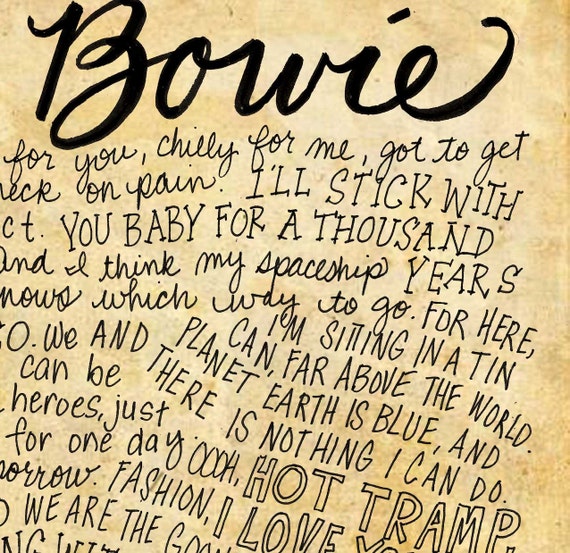 Bowie
for you, chilly for me, got to get
on pain. I'LL STICK WITH
YOU BABY FOR A THOUSAND
and I think my spaceship YEARS
which way to go. FOR HERE,
I'M SITTING IN A TIN
CAN, FAR ABOVE THE WORLD.
PLANET EARTH IS BLUE, AND
THERE IS NOTHING I CAN DO.
We AND
can be
heroes, just
for one day.
OOOH, HOT TRAMP,
FASHION, I LOVE
WE ARE THE